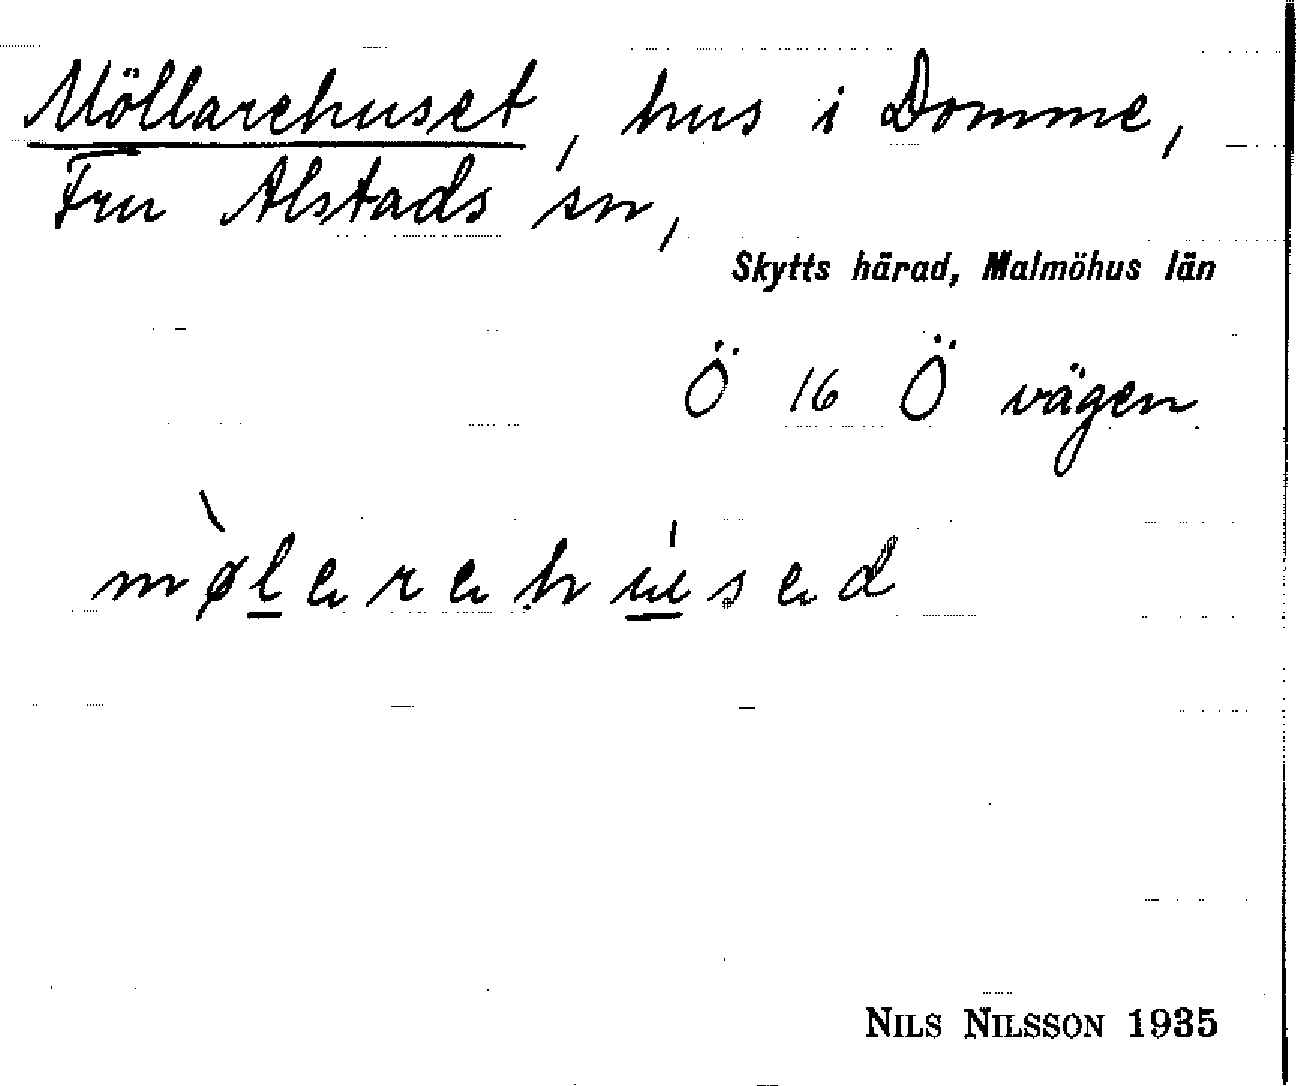 Möllarehuset, hus i Domme,
Fru Alstads sn,
Skytts härad, Malmöhus län
Ö 16 Ö vägen
mø̀l̲ərəhu̲̍səd
NILS NILSSON 1935